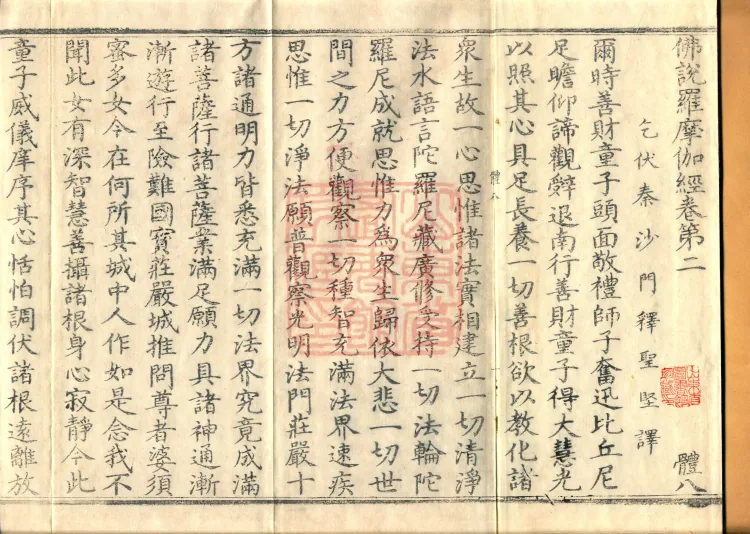 佛說羅摩伽經卷第二
體八
乞伏秦沙門釋聖堅譯
爾時善財童子頭面敬禮師子奮迅比丘尼
足瞻仰諦觀辭退南行善財童子得大慧光
以照其心具足長養一切善根欲以教化諸
體八
衆生故一心思惟諸法實相建立一切清淨
法水語言陀羅尼藏廣修受持一切法輪陀
羅尼成就思惟力為衆生歸依大悲一切世
間之力方便觀察一切種智充滿法界速疾
思惟一切淨法願普觀察光明法門莊嚴十
方諸通明力皆悉充滿一切法界究竟成滿
諸菩薩行諸菩薩業滿足願力具諸神通漸
漸遊行至險難國寶莊嚴城推問尊者婆須
蜜多女今在何所其城中人作如是念我不
聞此女有深智慧善攝諸根身心寂靜今此
童子威儀庠序其心恬怕調伏諸根遠離放